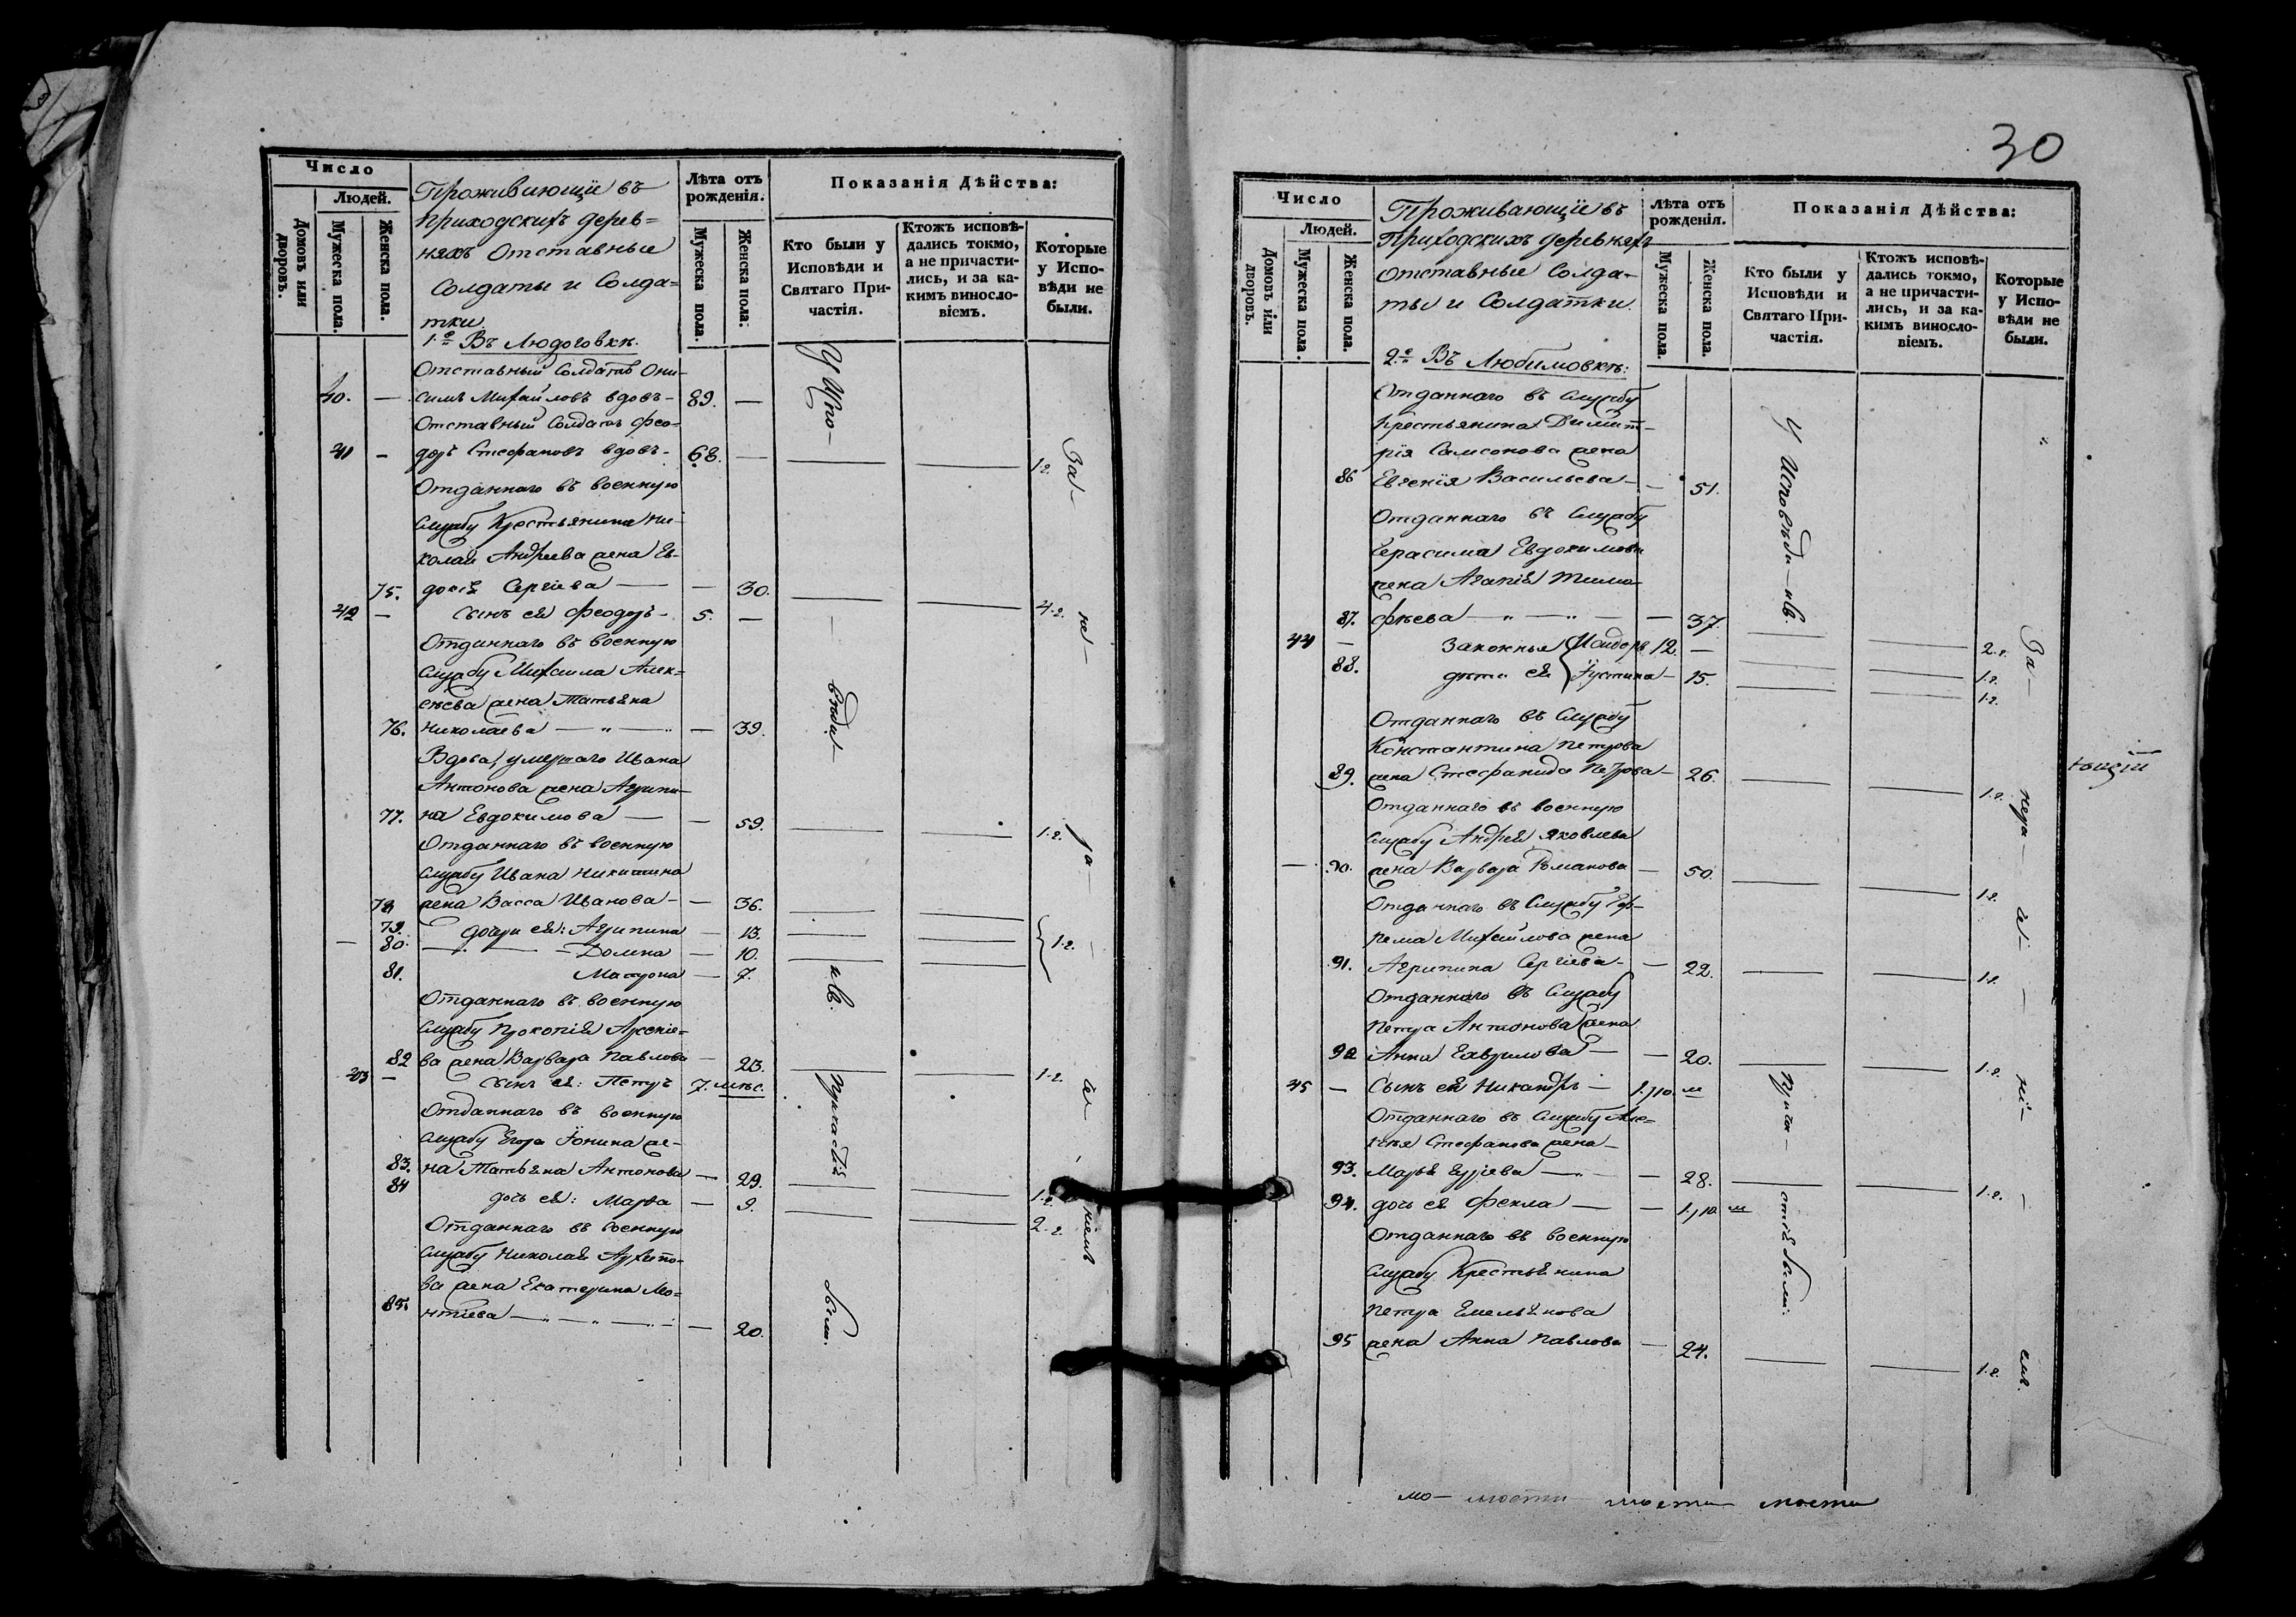 Число
Людей.
Домовъ или дворовъ.
Мужеска пола.
Женска пола.
Проживающіе въ
приходскихъ дерев=
няхъ Отставные
Солдаты и Солда=
тки
1е Въ Людоговкѣ.
Лѣта отъ рожденія.
Мужеска пола.
Женска пола.
Показанія Дѣйства:
Кто были у Исповѣди и Святаго Причастія.
Ктожъ исповѣдались токмо, а не причастились, и за какимъ винословіемъ.
Которые у Исповѣди не были.
Отставный Солдатъ Они-
40. — симъ Михайловъ вдовъ- 89. —
Отставный Солдатъ Фео-
41 - доръ Стефановъ вдовъ- 68. — 1.г.
Отданнаго въ военную
службу Крестьянина Ни-
колая Андреева жена Ев-
75. докія Сергіева — — 30.
42 — сынъ ея Феодоръ- 5. — 4.г.
Отданнаго въ военную
службу Михаила Алек=
сѣева жена Татьяна
76. Николаева — — 39.
Вдова, умершаго Ивана
Антонова жена Агрипи-
77. на Евдокимова — — 59. 1.г.
Отданнаго въ военную
службу Ивана Никитина
78 жена Васса Иванова- — 36.
79. дочери ея: Агрипина — 13.
— 80. — Домна — 10. 1.г.
81. Матрона — 7.
Отданнаго въ военную
службу Прокопія Арсение=
82 ва жена Варвара Павлова — 23.
43 — сынъ ея: Петръ 7. мѣс. 1.г.
Отданнаго въ военную
службу Егора Іонина же-
83. на Татьяна Антонова — 29.
84 дочь ея: Марѳа — 9. 1.г.
Отданнаго въ военную 2.г.
службу Николая Архипо-
ва жена Екатерина Мо=
85. нтіева — — 20.
У Испо-
вѣди-
нв.
причастія
были.
За-
не-
30
Число
Людей.
Домовъ или дворовъ.
Мужеска пола.
Женска пола.
Проживающіе въ
Приходскихъ деревняхъ
отставные Солда-
ты и Солдатки.
2е Въ Любимовкѣ:
Лѣта отъ рожденія.
Мужеска пола.
Женска пола.
Показанія Дѣйства:
Кто были у Исповѣди и Святаго Причастія.
Ктожъ исповѣдались токмо, а не причастились, и за какимъ винословіемъ.
Которые у Исповѣди не были.
Отданнаго въ службу
крестьянина Димит-
рія Самсонова жена
86 Евгенія Васильева- — 51.
Отданнаго въ службу
Герасима Евдокимова
жена Агапія Тимо-
87. фѣева — — 37.
44 — Законныя Исидоръ 12. — 2.г.
88. дѣти ея Іустина- 15. 1.г.
1.г.
Отданнаго въ службу
Константина Петрова
89. жена Стефанида Петрова- 26. 1.г.
Отданнаго въ военную
службу Андрея Яковлева
— 90. жена Варвара Романова — 50. 1.г.
Отданнаго въ службу Еф-
рема Михайлова жена
91. Агрипина Сергіева- — 22. 1.г.
Отданнаго въ службу
Петра Антонова жена
92 Анна Гаврилова — — 20. 1.г.
45 — Сынъ ея Никандръ — 1.,10. м
Отданнаго въ службу Але=
ксѣя Стефанова жена-
93. Марья Гурьева — — 28. 1.г.
94. дочь ея Фекла — — 1.,10. м
Отданнаго въ военную
службу Крестьянина
Петра Емельянова
95 жена Анна Павлова — 24. 1.г.
У Исповѣди-
прича-
стія были.
За-